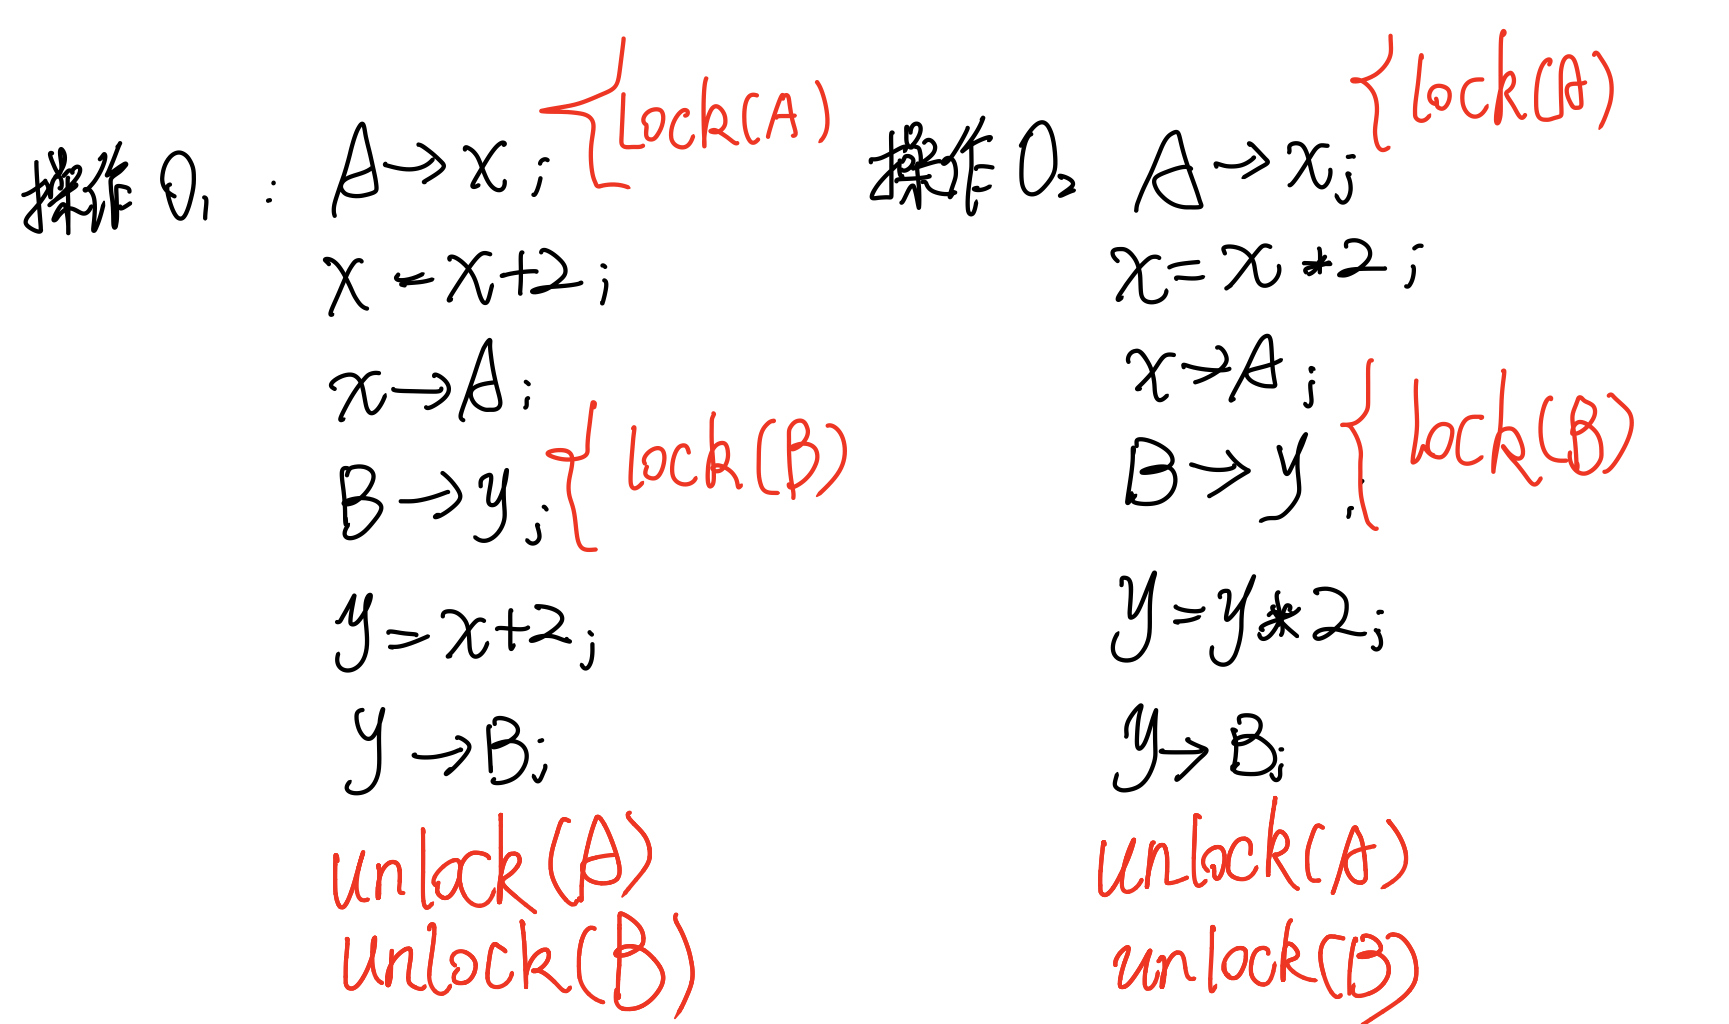 操作 O₁ : A→x; lock(A)
x = x+2;
x→A;
B→y; lock(B)
y = x+2;
y→B;
unlock(A)
unlock(B)
操作 O₂ A→x; lock(A)
x = x*2;
x→A;
B→y; lock(B)
y = y*2;
y→B;
unlock(A)
unlock(B)